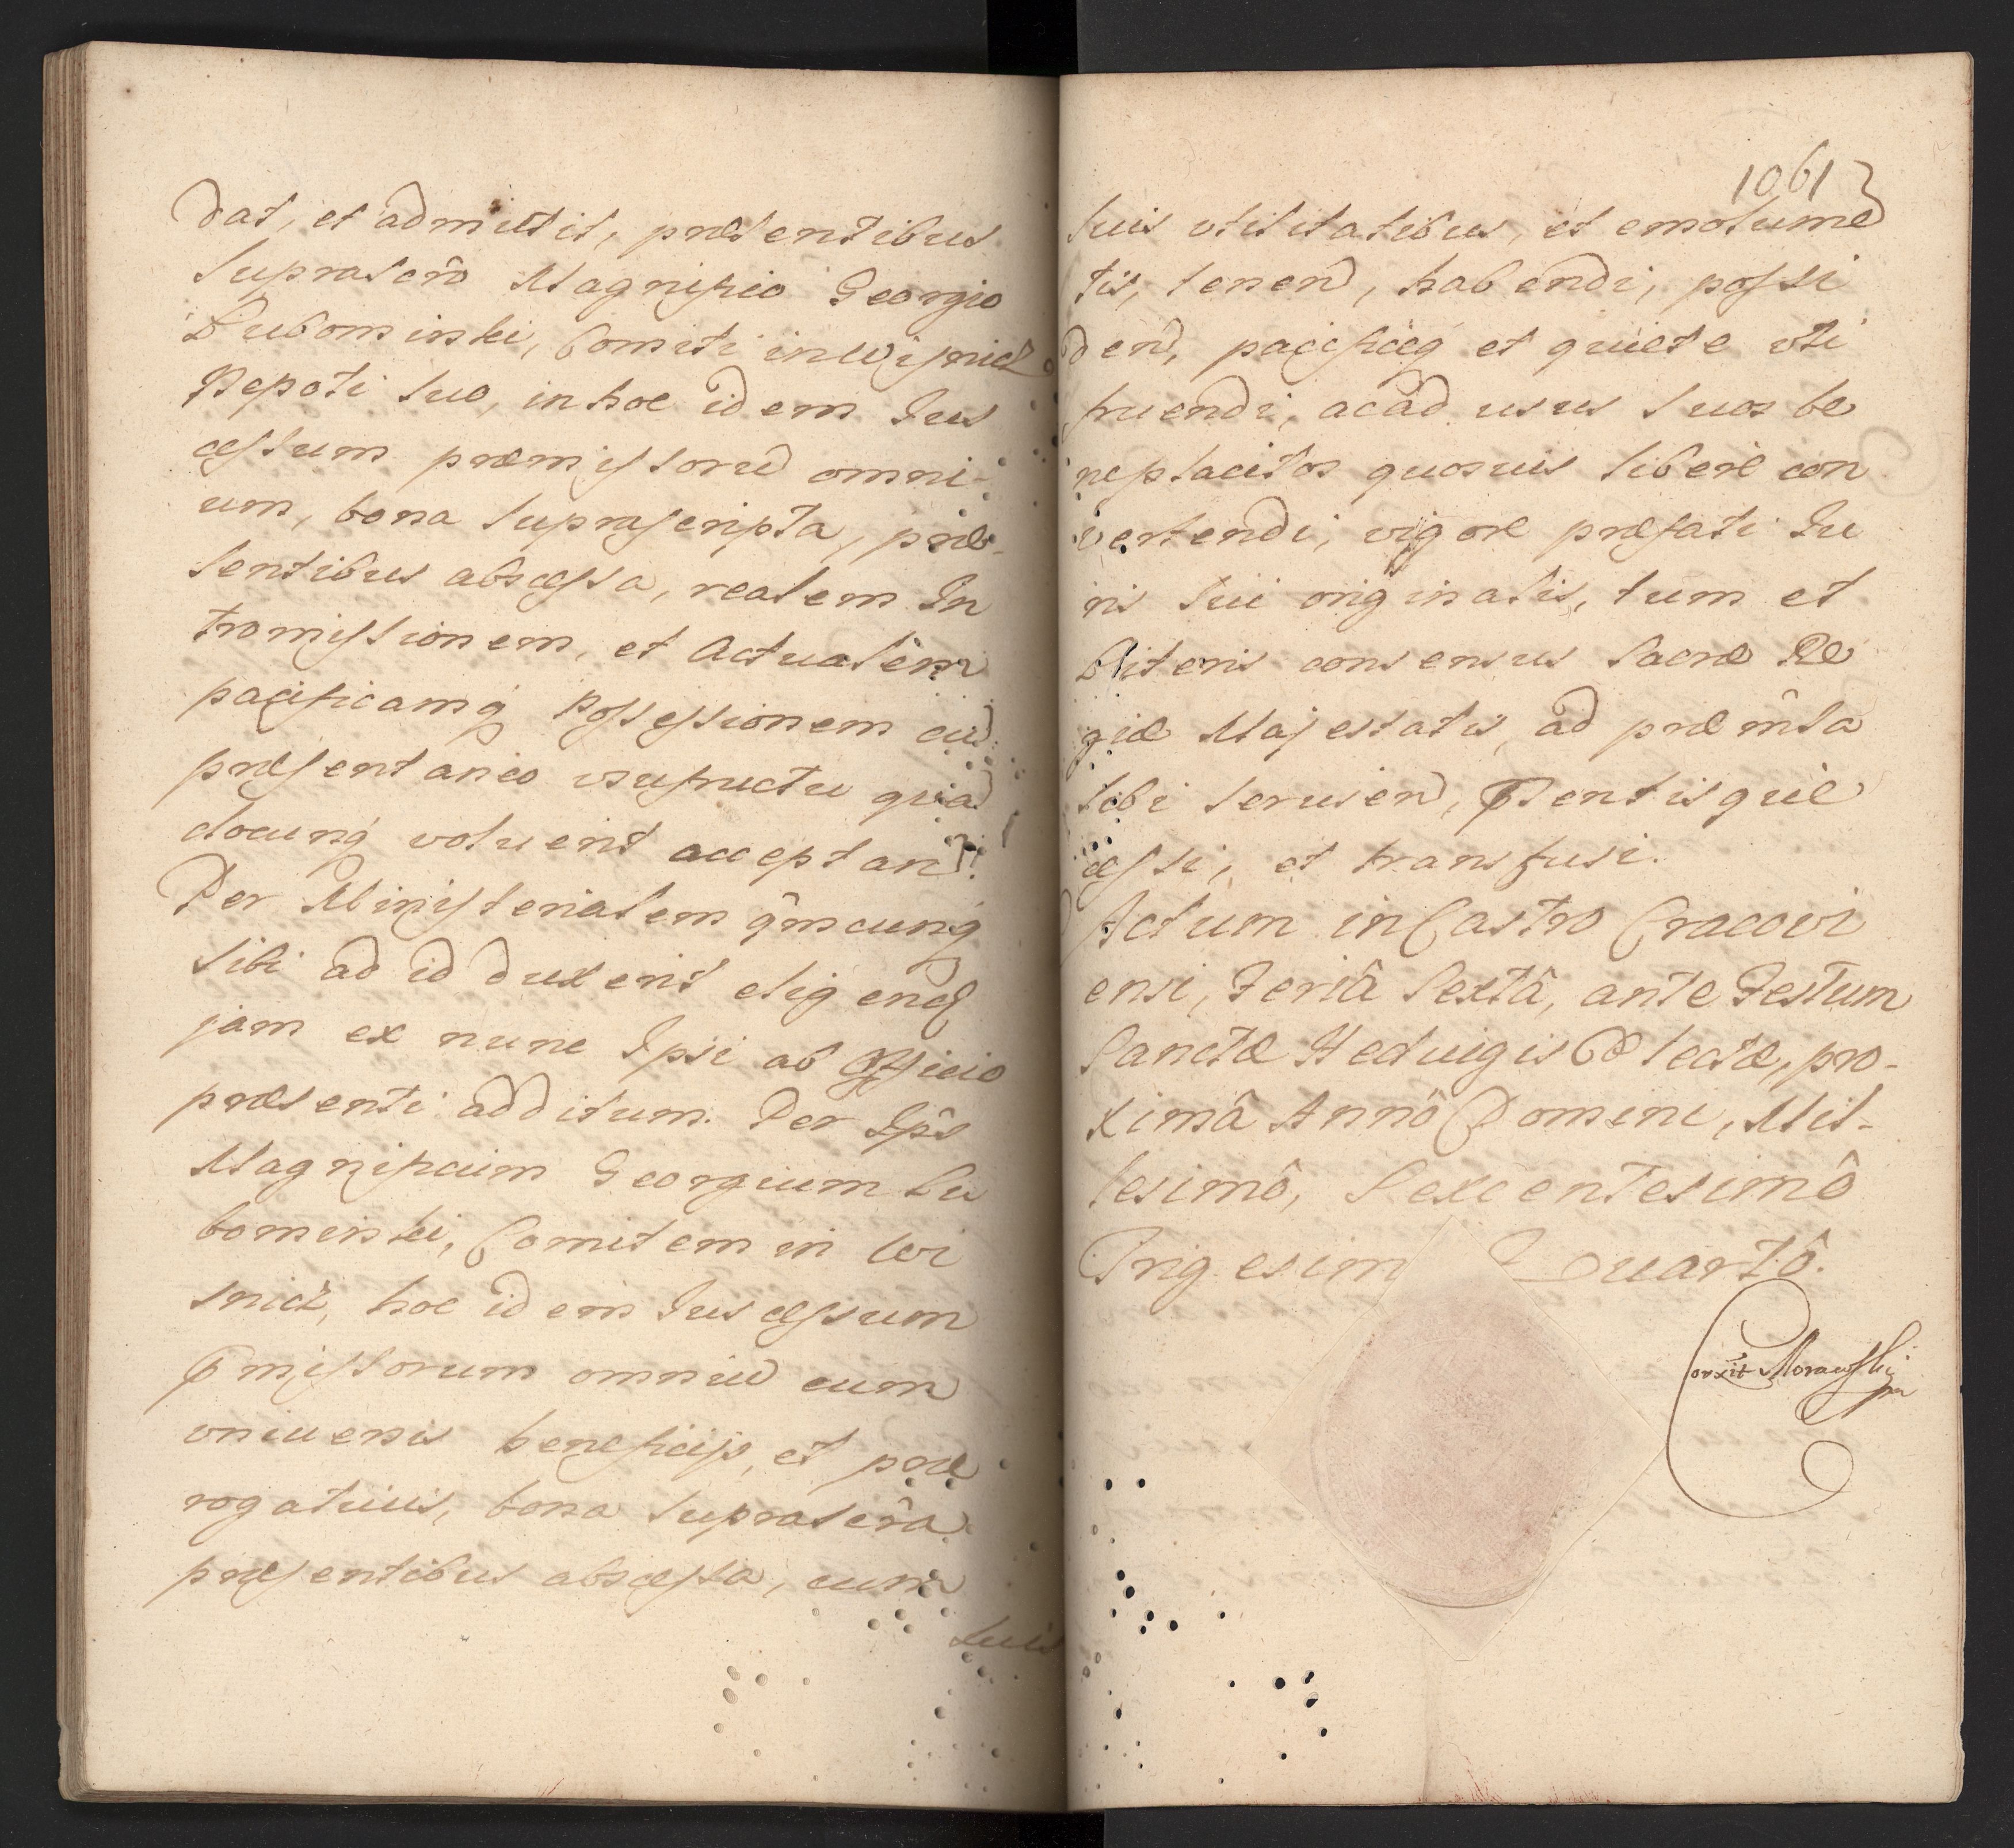 dat, et admittit, præsentibus
suprascrô Magnifico Georgio
Lubomirski, Comiti in Wisnicz
Nepoti suo, in hoc idem Jus
cessum præmissorũ omni-
um, bona suprascripta, præ-
sentibus abscessa, realem In
tromissionem, et Actualem
pacificamq́ Possessionem cũ
præsentaneo vsufructu quã
docunq́ voluerit acceptañ.
Per Ministerialem q̂mcunq́
sibi ad id duxerit eligend
jam ex nunc Ipsi ab Officio
præsenti additum. Per Ips̃
Magnificum Georgium Lu
bomirski, Comitem in Wi
snicz, hoc idem Jus cessum
p̃missorum omniũ cum
vniuersis beneficijs, et præ
rogatiuis, bona suprascrâ
præsentibus abscessa, cum
suis
1061
suis vtilitatibus, et emolumẽ
tis, tenend, habendi, possi
dend, pacificèq́ et quiete vti
fruendi, ac ad usus suos be
neplacitos quosuis liberè con
vertendi, vigore præfati Ju
ris sui originalis, tum et
Literis consensus Sacræ Re
giæ Majestatis, ad præm̂sa
sibi seruien, p̃sentisquè
cessi, et transfusi.
Actum in Castro Cracovi
ensi, Feriâ Sextâ, ante Festum
Sanctæ Heduigis Electæ, pro-
ximâ Annô Domini, Mil-
lesimô, Sexcentesimô
Trigesim Quartô.
Corxit Morawski
mp